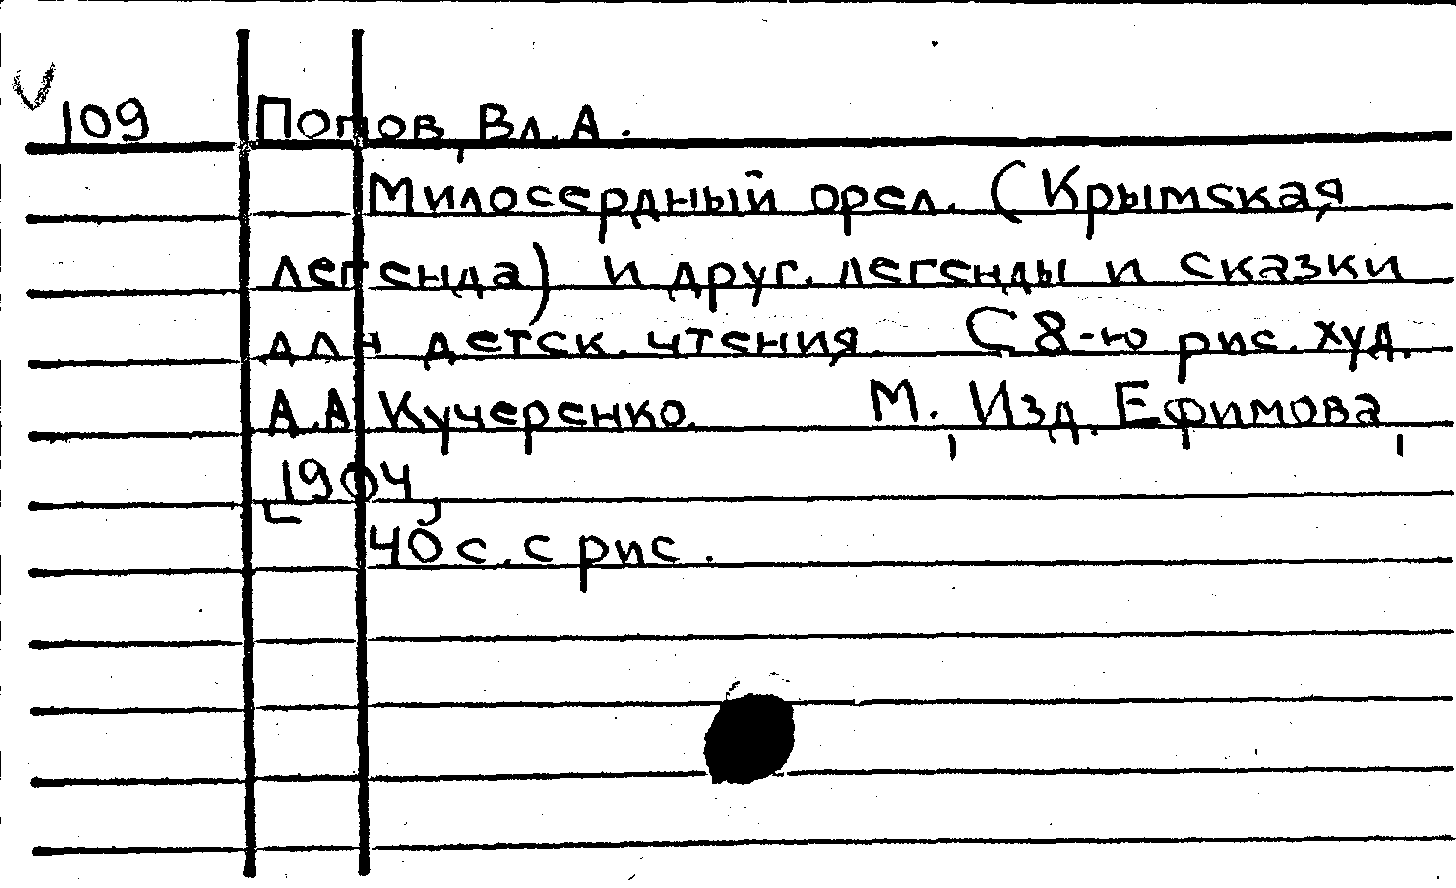 109 Попов, Вл. А.
Милосердный орел. (Крымская
легенда) и друг. легенды и сказки
для детск. чтения. С 8-ю рис. худ.
А.А. Кучеренко. М., Изд. Ефимова,
[1904]
40 с. с рис.